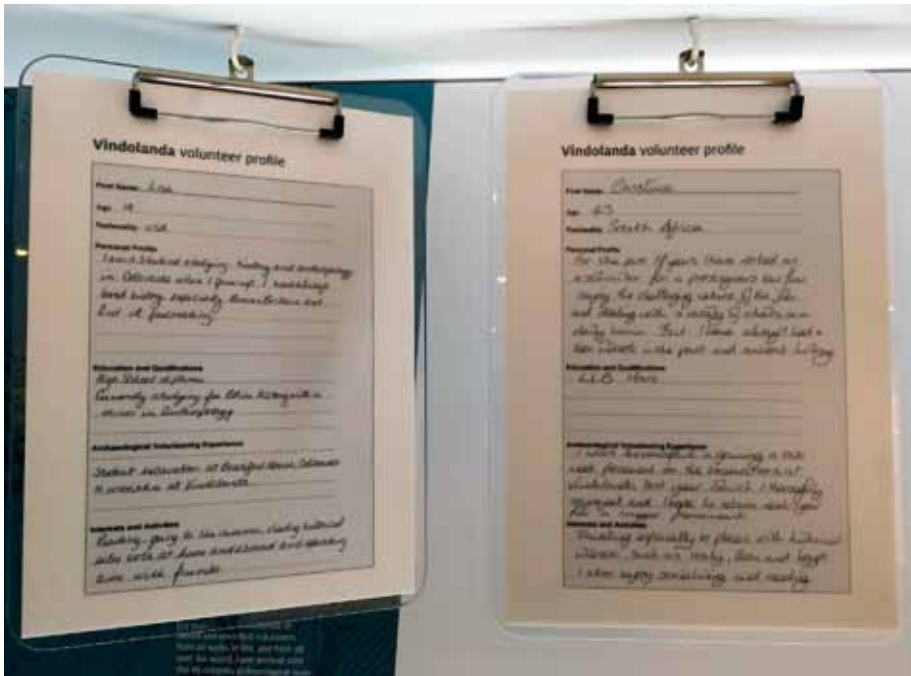 Vindolanda volunteer profile
First Name: Lisa
Age: 19
Nationality: USA
Personal Profile
I am a student studying history and anthropology
in Colorado where I grew up. I have always
loved history especially Roman Britain and
find it fascinating
Education and Qualifications
High School diploma
Currently studying for BA in History with a
minor in Anthropology
Archaeological Volunteering Experience
Student excavation at House, Colorado
weeks at Vindolanda
Interests and Activities
Reading, going to the cinema, visiting historical
sites both at home and abroad and spending
time with friends
Vindolanda volunteer profile
First Name:
Age:
Nationality: South Africa
Personal Profile
For the years I have worked as
a solicitor for a
enjoy the challenging nature of the job
and dealing with a variety of clients on a
daily basis. But, I have always had a
keen interest in the past and ancient history
Education and Qualifications
LLB Hons
Archaeological Volunteering Experience
I was in gaining a two
week placement on the excavations at
Vindolanda last year which I thoroughly
enjoyed and I hope to return next year
for a longer placement
Interests and Activities
Travelling especially to places with historical
interest such as Italy, and Egypt
I also enjoy and reading
from all walks of life, and from all
over the world, have worked with